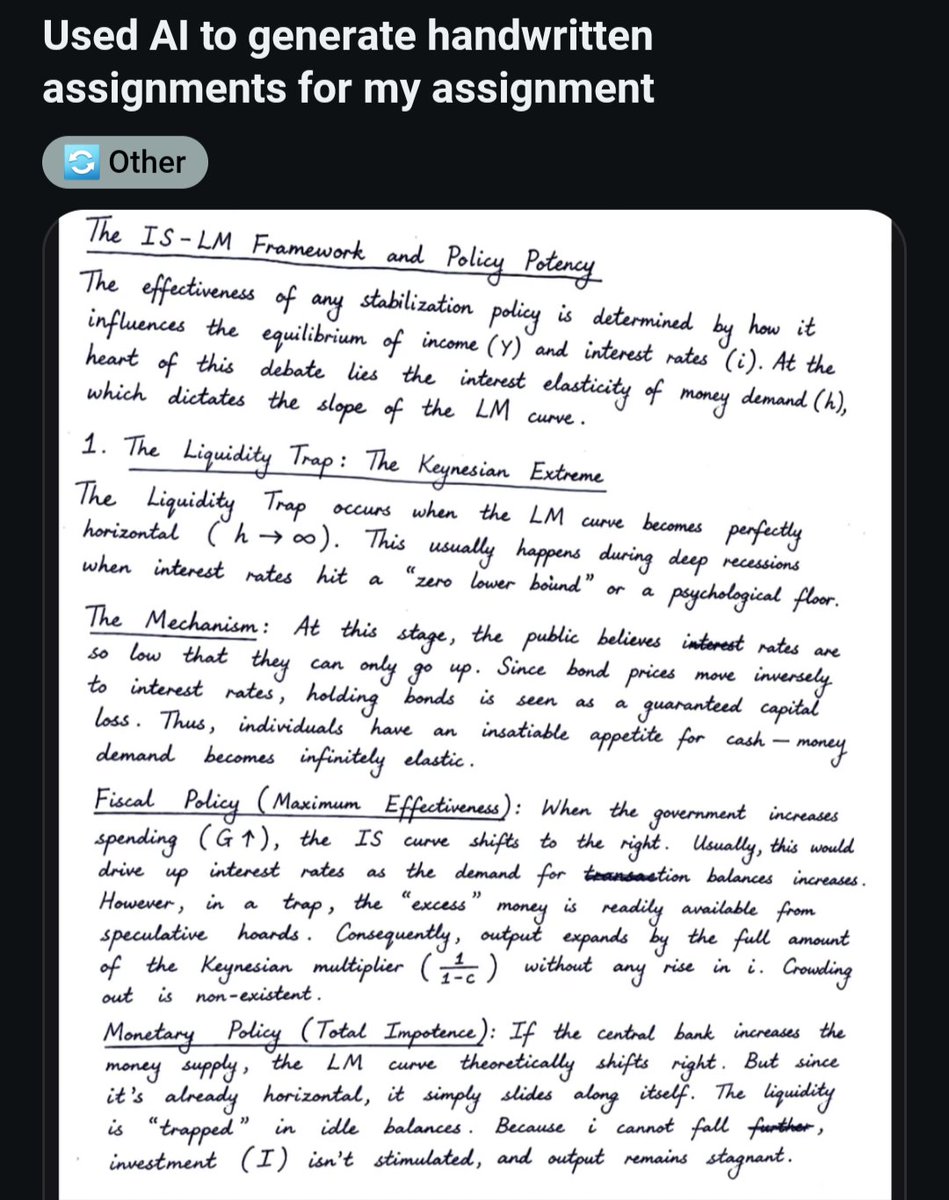 Used AI to generate handwritten
assignments for my assignment
Other
The IS-LM Framework and Policy Potency
The effectiveness of any stabilization policy is determined by how it
influences the equilibrium of income (Y) and interest rates (i). At the
heart of this debate lies the interest elasticity of money demand (h),
which dictates the slope of the LM curve.
1. The Liquidity Trap: The Keynesian Extreme
The Liquidity Trap occurs when the LM curve becomes perfectly
horizontal (h → ∞). This usually happens during deep recessions
when interest rates hit a "zero lower bound" or a psychological floor.
The Mechanism: At this stage, the public believes interest rates are
so low that they can only go up. Since bond prices move inversely
to interest rates, holding bonds is seen as a guaranteed capital
loss. Thus, individuals have an insatiable appetite for cash — money
demand becomes infinitely elastic.
Fiscal Policy (Maximum Effectiveness): When the government increases
spending (G ↑), the IS curve shifts to the right. Usually, this would
drive up interest rates as the demand for transaction balances increases.
However, in a trap, the "excess" money is readily available from
speculative hoards. Consequently, output expands by the full amount
of the Keynesian multiplier (1/1-c) without any rise in i. Crowding
out is non-existent.
Monetary Policy (Total Impotence): If the central bank increases the
money supply, the LM curve theoretically shifts right. But since
it's already horizontal, it simply slides along itself. The liquidity
is "trapped" in idle balances. Because i cannot fall further,
investment (I) isn't stimulated, and output remains stagnant.